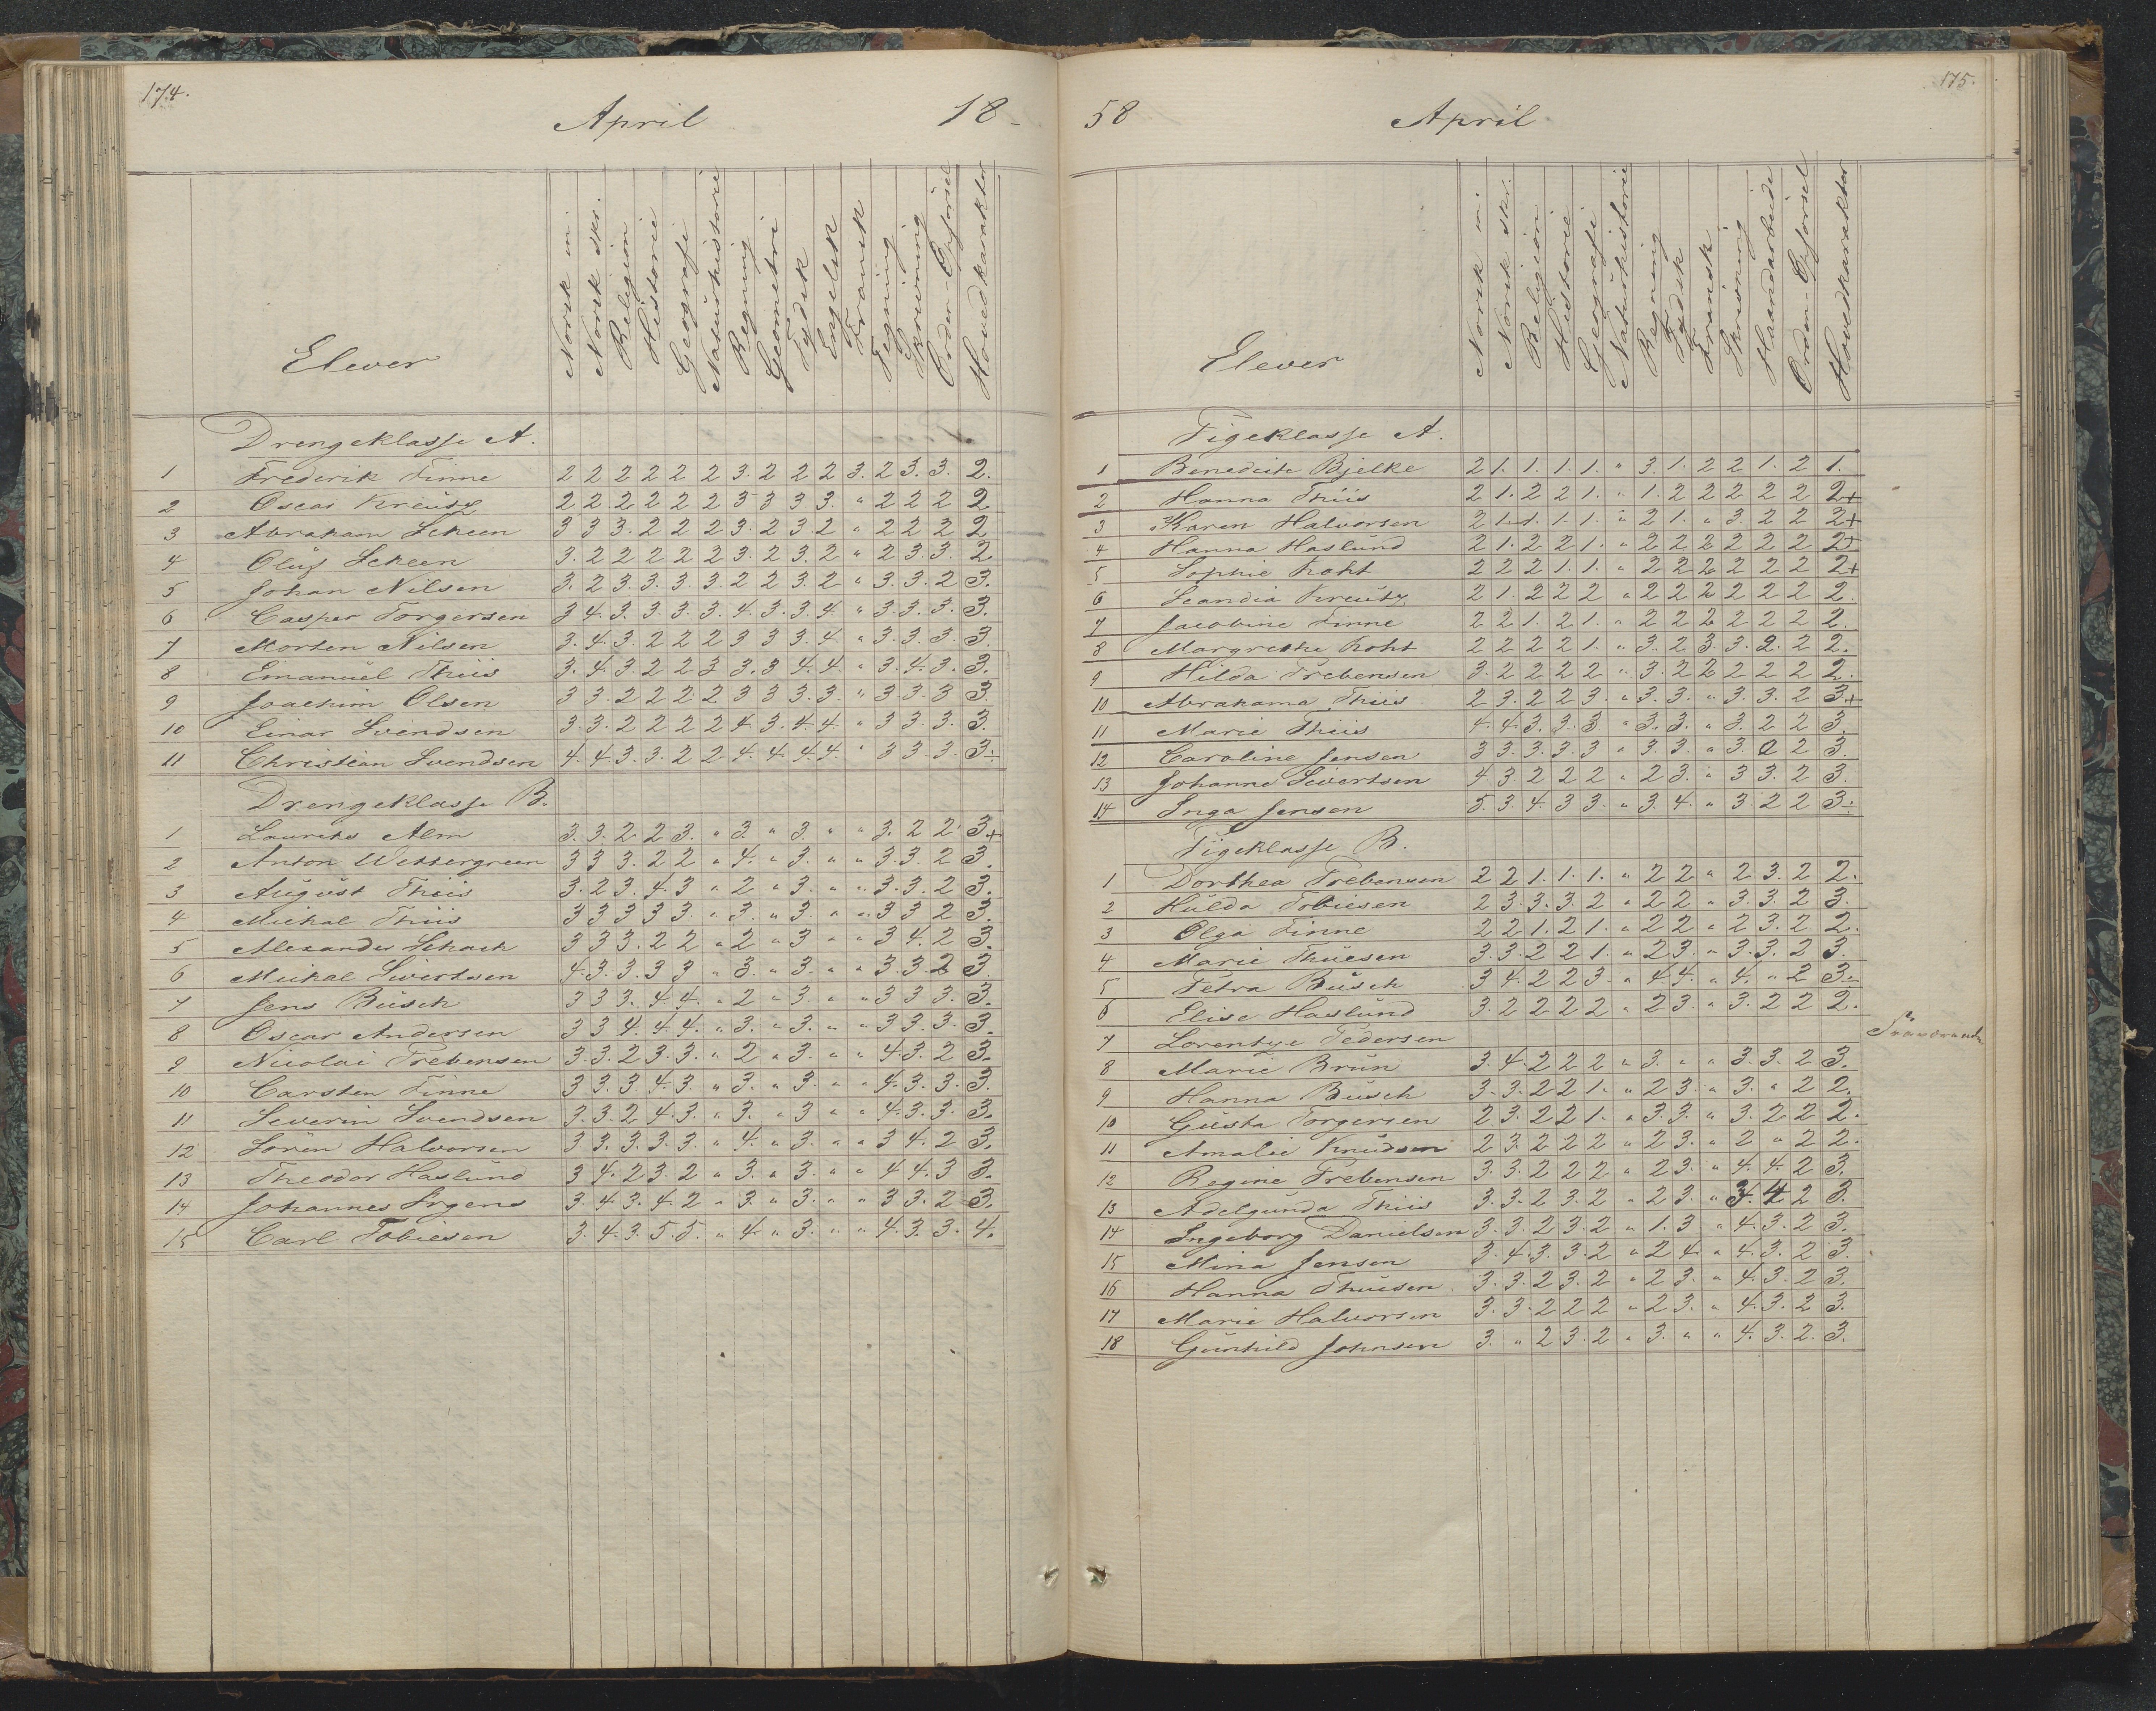 174.
April 18-
Elever Norsk m. Norsk skr. Religion Historie Geografi Naturhistorie Regning Geometri Tydsk Engelsk Fransk Tegning Skrivning Orden-Opförsel Hovedkarakter
Drengeklasse A.
1 Frederik Finne 2 2 2 2 2 2 3. 2 2 2 3. 2 3. 3. 2.
2 Oscar Kreutz 2 2 2 2 2 2 3 3 3 3. " 2 2 2 2
3 Abraham Scheen 3 3 3. 2 2 2 3. 2 3. 2 " 2 2 2 2
4 Oluf Scheen 3. 2 2 2 2 2 3. 2 3. 2 " 2 3. 3. 2.
5 Johan Nilsen 3. 2 3. 3. 3. 3 2 2 3. 2 " 3. 3. 2 3.
6 Casper Torgersen 3 4. 3. 3. 3. 3. 4. 3. 3. 4 " 3. 3. 3. 3.
7 Morten Nilsen 3. 4. 3. 2 2 2 3 3 3. 4. " 3. 3. 3. 3.
8 Emanuel Thiis 3. 4. 3 2 2 3 3. 3 4. 4. " 3. 4. 3. 3.
9 Joachim Olsen 3 3. 2 2 2 2 3 3 3. 3. " 3 3. 3 3.
10 Einar Svendsen 3. 3. 2 2 2 2 4. 3. 4. 4. " 3 3 3. 3.
11 Christian Svendsen 4. 4 3. 3. 2 2 4. 4. 4. 4. " 3 3 3. 3÷
Drengeklasse B.
1 Laurits Alm 3. 3. 2 2 3. " 3. " 3. " " 3. 2 2. 3.+
2 Anton Wettergreen 3 3 3. 2 2 " 4. " 3. " " 3. 3. 2 3.
3 August Thiis 3. 2 3. 4. 3 " 2 " 3. " " 3. 3. 2 3.
4 Michal Thiis 3 3 3 3 3. " 3. " 3. " " 3 3 2 3.
5 Alexander Schach 3 3 3. 2 2 " 2 " 3 " " 3 4. 2 3.
6 Michal Sivertsen 4. 3. 3. 3 3 " 3. " 3. " " 3. 3. 2 3.
7 Jens Busch 3 3 3. 4. 4. " 2 " 3. " " 3 3 3. 3.
8 Oscar Andersen 3 3 4. 4. 4. " 3. " 3. " " 3 3. 3. 3.
9 Nicolai Trebensen 3. 3. 2 3. 3. " 2 " 3. " " 4. 3. 2 3.
10 Carsten Finne 3 3. 3 4. 3. " 3. " 3. " " 4. 3. 3. 3.
11 Severin Svendsen 3. 3. 2 4. 3. " 3. " 3 " " 4. 3. 3. 3.
12 Sören Halvorsen 3 3. 3. 3. 3. " 4. " 3. " " 3 4. 2 3.
13 Theodor Haslund 3 4. 2 3. 2 " 3. " 3. " " 4 4. 3 3.
14 Johannes Irgens 3. 4. 3. 4. 2 " 3. " 3. " " 3 3. 2 3.
15 Carl Tobiesen 3. 4. 3. 5. 5. " 4. " 3. " " 4. 3. 3. 4.
175.
58 April
Elever Norsk m. Norsk skr. Religion Historie Geografi Naturhistorie Regning Tydsk Fransk Skrivning Haandarbeide Orden-Opförsel Hovedkarakter
Pigeklasse A.
1 Benedicte Bjelke 2 1. 1. 1. 1. " 3. 1. 2 2 1. 2 1.
2 Hanna Thiis 2 1. 2 2 1. " 1. 2 2 2 2 2 2+
3 Karen Halvorsen 2 1. 1. 1. 1. " 2 1. " 3. 2 2 2+
4 Hanna Haslund 2 1. 2 2 1. " 2 2 2 2 2 2 2+
5 Sophie Koht 2 2 2 1. 1. " 2 2 2 2 2 2 2+
6 Scandia Kreutz 2 1. 2 2 2 " 2 2 2 2 2 2 2.
7 Jacobine Finne 2 2 1. 2 1. " 2 2 2 2 2 2 2.
8 Margrethe Koht 2 2 2 2 1. " 3. 2 3. 3. 2. 2 2.
9 Hilda Trebensen 3. 2 2 2 2 " 3. 2 2 2 2 2 2.
10 Abrahama Thiis 2 3. 2 2 3. " 3. 3. " 3. 3. 2 3+
11 Marie Thiis 4. 4. 3. 3. 3 " 3. 3. " 3. 2 2 3.
12 Caroline Jensen 3 3. 3. 3. 3 " 3. 3. " 3. 2 2 3.
13 Johanne Sivertsen 4. 3 2 2 2 " 2 3. " 3 3. 2 3.
14 Inga Jensen 5. 3. 4. 3 3. " 3. 4. " 3. 2 2 3÷
Pigeklasse B.
1 Dorthea Trebensen 2 2 1. 1. 1. " 2 2 " 2 3. 2 2.
2 Hulda Tobiesen 2 3. 3. 3. 2 " 2 2 " 3. 3. 2 3.
3 Olga Finne 2 2 1. 2 1. " 2 2 " 2 3. 2 2.
4 Marie Thuesen 3. 3. 2 2 1. " 2 3. " 3. 3. 2 3.
5 Petra Busch 3 4. 2 2 3. " 4. 4. " 4. " 2 3÷
6 Elise Haslund 3. 2 2 2 2 " 2 3. " 3. 2 2 2.
7 Lorentze Pedersen Fraværende
8 Marie Brun 3. 4. 2 2 2 " 3. " " 3. 3. 2 3.
9 Hanna Busch 3. 3. 2 2 1. " 2 3. " 3. " 2 2.
10 Gusta Torgersen 2 3. 2 2 1. " 3. 3. " 3. 2 2 2.
11 Amalie Knudsen 2 3. 2 2 2 " 2 3. " 2 " 2 2.
12 Regine Trebensen 3. 3. 2 2 2 " 2 3. " 4. 4. 2 3.
13 Adelgunda Thiis 3. 3. 2 3. 2 " 2 3. " 3. 4 2 3.
14 Ingeborg Danielsen 3. 3. 2 3. 2 " 1. 3 " 4. 3. 2 3.
15 Mina Jensen 3. 4. 3. 3. 2 " 2 4. " 4. 3. 2 3.
16 Hanna Thuesen 3. 3. 2 3. 2 " 2 3. " 4. 3. 2 3.
17 Marie Halvorsen 3. 3. 2 2 2 " 2 3. " 4. 3. 2 3.
18 Gunhild Johnsen 3. " 2 3. 2 " 3. " " 4. 3. 2. 3.